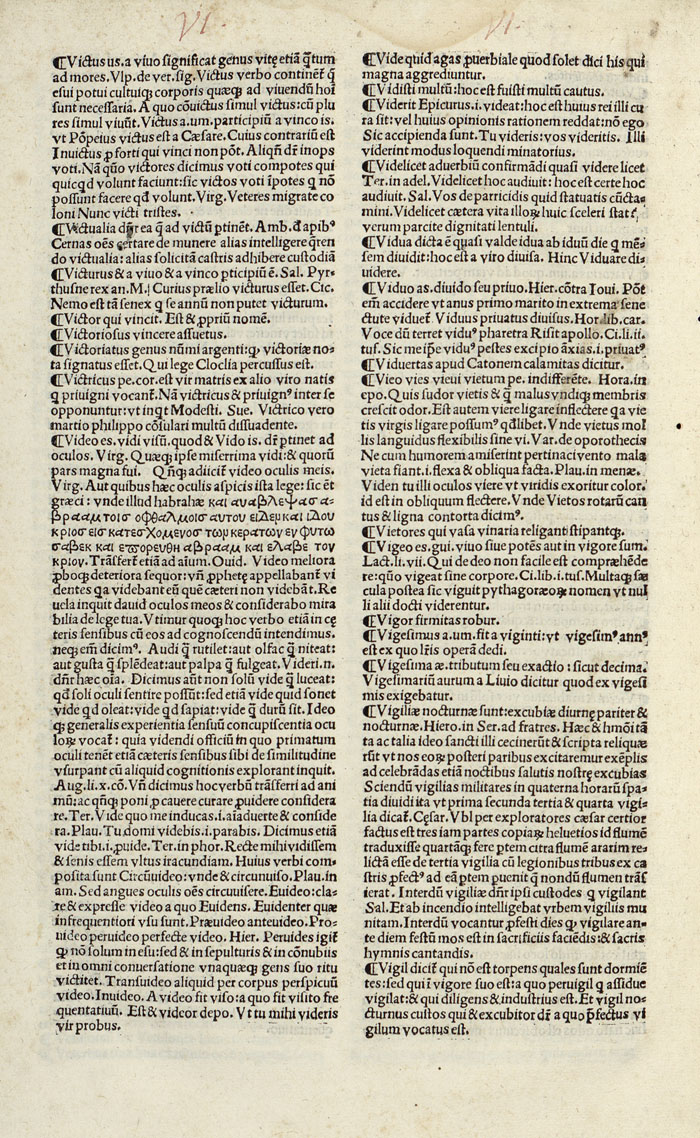 VI
¶Victus us. a viuo significat genus vitę etiā q̄tum
ad mores. Vlp. de ver. sig. Victus verbo continet̄ q̄
esui potui cultuiqȝ corporis quæqȝ ad viuendū hoī
sunt necessaria. A quo cōuictus simul victus: cū plu
res simul viuūt. Victus a. um. participiū a vinco is.
vt Pōpeius victus est a Cæsare. Cuius contrariū est
Inuictus ꝓ forti qui vinci non pōt. Aliqn̄ dr̄ inops
voti. Nā quo victores dicimus voti compotes qui
quicqd volunt faciunt: sic victos voti īpotes q nō
possunt facere qd volunt. Virg. Veteres migrate co
loni Nunc victi tristes.
¶Victualia dn̄r ea q̄ ad victū ptinēt. Amb. đ apibꝰ
Cernas oēs certare de munere alias intelligere q̄ren
do victualia: alias solicitā castris adhibere custodiā
¶Victurus & a viuo & a vinco pticipiū ē. Sal. Pyr⸗
thusne rex an. M. Curius prælio victurus esset. Cic.
Nemo est tā senex q se annū non putet victurum.
¶Victor qui vincit. Est & ꝓpriū nomē.
¶Victoriosus vincere assuetus.
¶Victoriatus genus nūmi argenti: qꝙ victoriæ no⸗
ta signatus esset. Qui lege Cloclia percussus est.
¶Victricus pe. cor. est vir matris ex alio viro natis
q priuigni vocant̄. Nā victricus & priuignꝰ inter se
opponuntur: vt inqt Modesti. Sue. Victrico vero
martio philippo cōsulari multū dissuadente.
¶Video es. vidi visū. quod & Vido is. dr̄ ptinet ad
oculos. Virg. Quæqȝ ipse miserrima vidi: & quorū
pars magna fui. Qn̄qȝ adiicit̄ video oculis meis.
Virg. Aut quibus hæc oculis aspicis ista lege: sic ēt
græci: vnde illud habrahæ και αναβλεψας α⸗
βρααμ τοις οφθαλμοις αυτου ειδεν και ιδου
κριος εις κατεσχομενος των κερατων εν φυτω
σαβεκ και επορευθη αβρααμ και ελαβε τον
κριον. Trāsfert̄ etiā ad aīum. Ouid. Video meliora
ꝓboqȝ deteriora sequor: vn̄ ꝓphetę appellabant̄ vi
dentes qa videbant eū quē cæteri non videbāt. Re
uela inquit dauid oculos meos & considerabo mira
bilia de lege tua. Vtimur quoqȝ hoc verbo etiā in cę
teris sensibus cū eos ad cognoscendū intendimus.
neqȝ em̄ dicimꝰ. Audi q̄ rutilet: aut olfac q̄ niteat:
aut gusta q̄ splēdeat: aut palpa q̄ fulgeat. Videri. n.
dn̄r hæc oīa. Dicimus aūt non solū vide q̄ luceat:
qđ soli oculi sentire possūt: sed etiā vide quid sonet
vide qd oleat: vide qd sapiat: vide q̄ durū sit. Ideo
qȝ generalis experientia sensuū concupiscentia ocu
loꝝ vocat̄: quia videndi officiū in quo primatum
oculi tenēt etiā cæteris sensibus sibi de similitudine
vsurpant cū aliquid cognitionis explorant inquit.
Aug. li. x. cō. Vn̄ dicimus hoc verbū trāsferri ad ani
mū: ac qn̄qȝ poni ꝓ cauere curare ꝓuidere considera
re. Ter. Vide quo me inducas. i. aīaduerte & conside
ra. Plau. Tu domi videbis. i. parabis. Dicimus etiā
vide tibi. i. ꝓuide. Ter. in phor. Recte mihi vidissem
& senis essem vltus iracundiam. Huius verbi com⸗
posita sunt Circūuideo: vnde & circunuiso. Plau. in
am. Sed angues oculis oēs circuuisere. Euideo: cla⸗
re & expresse video a quo Euidens. Euidenter quæ
infrequentiori vsu sunt. Præuideo anteuideo. Pro⸗
uideo peruideo perfecte video. Hier. Peruides igit̄
qꝙ nō solum in esu: sed & in sepulturis & in cōnubiis
et in omni conuersatione vnaquæqȝ gens suo ritu
victitet. Transuideo aliquid per corpus perspicuū
video. Inuideo. A video fit viso: a quo fit visito fre
quentatiuū. Est & videor depo. Vt tu mihi videris
vir probus.
VI
¶Vide quid agas ꝓuerbiale quod solet dici his qui
magna aggrediuntur.
¶Vidisti multū: hoc est fuisti multū cautus.
¶Viderit Epicurus. i. videat: hoc est huius rei illi cu
ra sit: vel huius opinionis rationem reddat: nō ego
Sic accipienda sunt. Tu videris: vos videritis. Illi
viderint modus loquendi minatorius.
¶Videlicet aduerbiū confirmādi quasi videre licet
Ter. in adel. Videlicet hoc audiuit: hoc est certe hoc
audiuit. Sal. Vos de parricidis quid statuatis cūcta⸗
mini. Videlicet cætera vita illoꝝ huic sceleri stat̄
verum parcite dignitati lentuli.
¶Vidua dicta ē quasi valde idua ab iduū die q mē⸗
sem diuidit: hoc est a viro diuisa. Hinc Viduare di⸗
uidere.
¶Viduo as. diuido seu priuo. Hier. cōtra Ioui. Pōt
em̄ accidere vt anus primo marito in extrema sene
ctute viduet̄. Viduus priuatus diuisus. Hor. lib. car.
Voce dū terret viduꝰ pharetra Risit apollo. Ci. li. ii.
tus. Sic meip̄e viduꝰ pestes excipio āxias. i. priuatꝰ
¶Viduertas apud Catonem calamitas dicitur.
¶Vieo vies vieui vietum pe. indifferēte. Hora. in
epo. Quis sudor vietis & q̄ malus vndiqȝ membris
crescit odor. Est autem viere ligare inflectere qa vie
tis virgis ligare possumꝰ qdlibet. Vnde vietus mol
lis languidus flexibilis sine vi. Var. de oporothecis
Ne cum humorem amiserint pertinaci vento mala
vieta fiant. i. flexa & obliqua facta. Plau. in menæ.
Viden tu illi oculos viere vt viridis exoritur color.
id est in obliquum flectere. Vnde Vietos rotarū can
tus & ligna contorta dicimꝰ.
¶Vietores qui vasa vinaria religant stipantqȝ.
¶Vigeo es. gui. viuo siue potēs aut in vigore sum.
Lact. li. vii. Qui de deo non facile est compræhēde
re: quo vigeat sine corpore. Ci. lib. i. tus. Multaqȝ sæ
cula postea sic viguit pythagoræoꝝ nomen vt nul
li alii docti viderentur.
¶Vigor firmitas robur.
¶Vigesimus a. um. fit a viginti: vt vigesimꝰ annꝰ
est ex quo lr̄is operā dedi.
¶Vigesima æ. tributum seu exactio: sicut decima.
Vigesimariū aurum a Liuio dicitur quod ex vigesi
mis exigebatur.
¶Vigiliæ nocturnæ sunt: excubiæ diurnę pariter &
nocturnæ. Hiero. in Ser. ad fratres. Hæc & hmōi tā
ta ac talia ideo sancti illi cecinerūt & scripta reliquæ
rūt vt nos eoꝝ posteri paribus excitaremur exēplis
ad celebrādas etiā noctibus salutis nostrę excubias
Sciendū vigilias militares in quaterna horarū spa⸗
tia diuidi ita vt prima secunda tertia & quarta vigi⸗
lia dicat̄. Cęsar. Vbl per exploratores cæsar certior
factus est tres iam partes copiaꝝ heluetios id flumē
traduxisse quartāqȝ fere ptem citra flumē ararim re⸗
lictā esse de tertia vigilia cū legionibus tribus ex ca
stris ꝓfectꝰ ad eā ptem puenit q̄ nondū flumen trāſ
ierat. Interdū vigiliæ dn̄r ipsi custodes q vigilant
Sal. Et ab incendio intelligebat vrbem vigiliis mu
nitam. Interdū vocantur ꝓfesti dies qȝ vigilare an⸗
te diem festū mos est in sacrificiis faciēdis: & sacris
hymnis cantandis.
¶Vigil dicit̄ qui nō est torpens quales sunt dormiē
tes: sed qui ī vigore suo est: a quo peruigil q assidue
vigilat: & qui diligens & industrius est. Et vigil no⸗
cturnus custos qui & excubitor dr̄ a quo p̄fectus vi
gilum vocatus est.